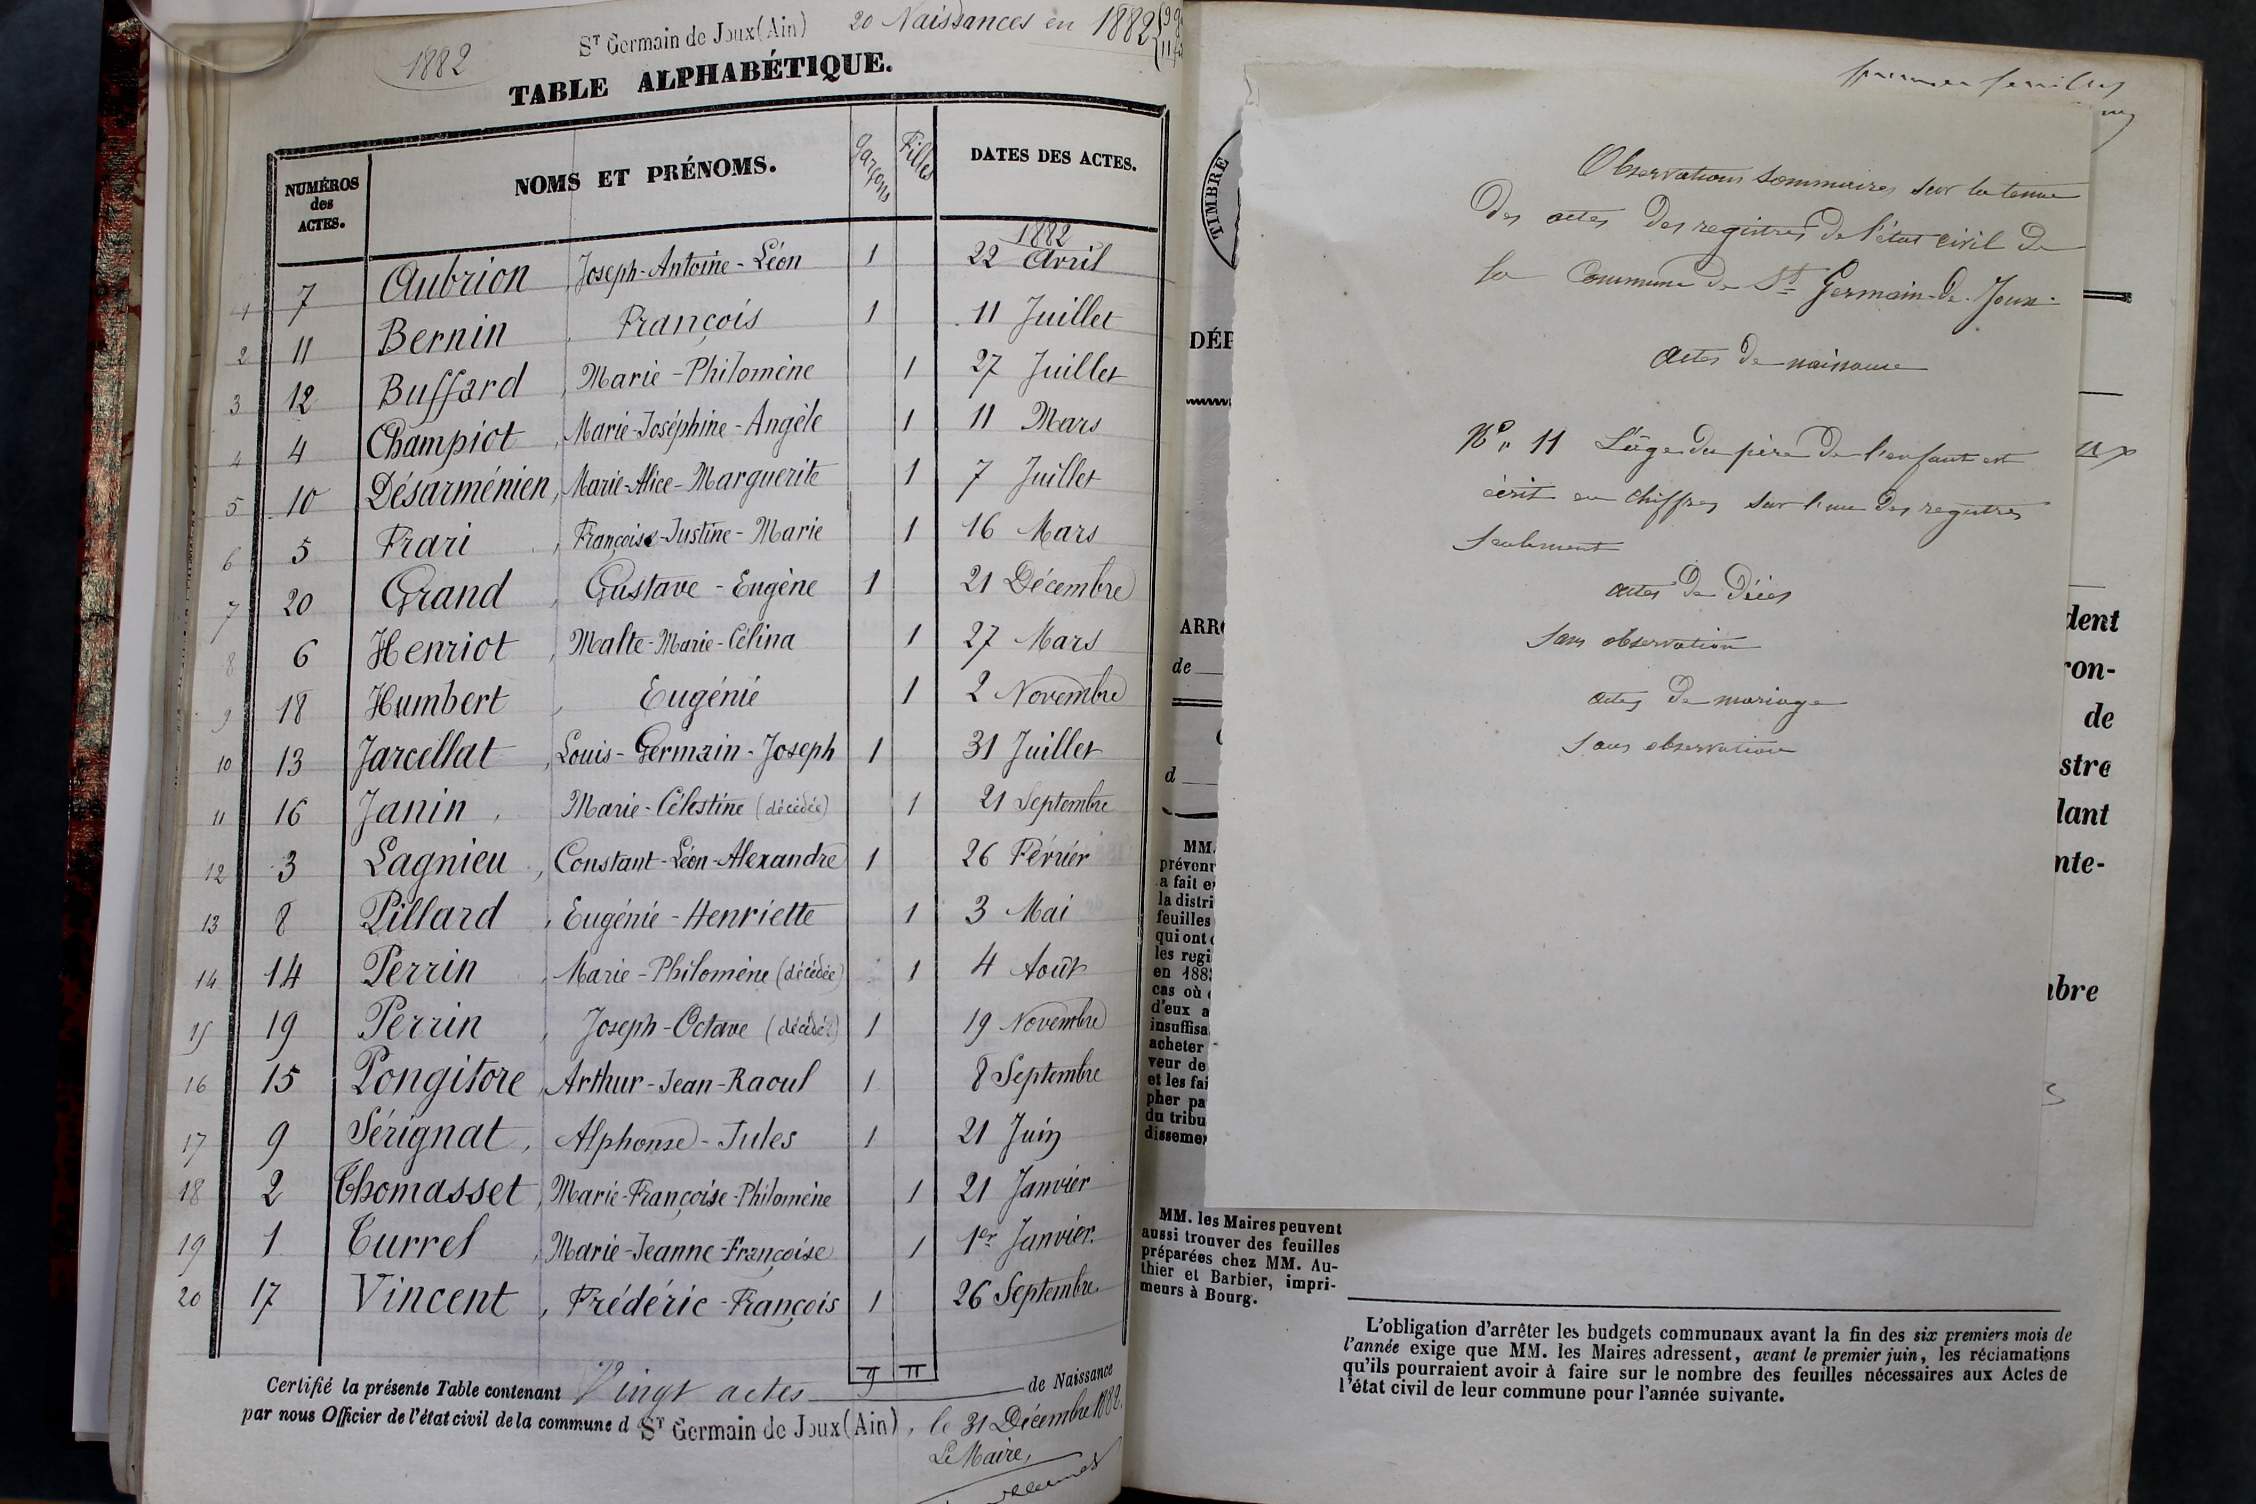 1882
ST Germain de Joux (Ain)
20 Naissances en 1882
TABLE ALPHABÉTIQUE.
NUMÉROS des ACTES. NOMS ET PRÉNOMS. Garçons Filles DATES DES ACTES.
1882
1 7 Aubrion, Joseph-Antoine-Léon 1 22 Avril
2 11 Bernin, François 1 11 Juillet
3 12 Buffard, Marie-Philomène 1 27 Juillet
4 4 Champiot, Marie-Joséphine-Angèle 1 11 Mars
5 10 Désarménien, Marie-Alice-Marguerite 1 7 Juillet
6 5 Frari, Françoise-Justine-Marie 1 16 Mars
7 20 Grand, Gustave-Eugène 1 21 Décembre
8 6 Henriot, Malte-Marie-Célina 1 27 Mars
9 18 Humbert, Eugénie 1 2 Novembre
10 13 Jarcellat, Louis-Germain-Joseph 1 31 Juillet
11 16 Janin, Marie-Célestine (décédée) 1 21 Septembre
12 3 Lagnieu, Constant-Léon-Alexandre 1 26 Février
13 8 Pillard, Eugénie-Henriette 1 3 Mai
14 14 Perrin, Marie-Philomène (décédée) 1 4 Août
15 19 Perrin, Joseph-Octave (décédé) 1 19 Novembre
16 15 Pongitore, Arthur-Jean-Raoul 1 8 Septembre
17 9 Sérignat, Alphonse-Jules 1 21 Juin
18 2 Thomasset, Marie-Françoise-Philomène 1 21 Janvier
19 1 Turrel, Marie-Jeanne-Françoise 1 1er Janvier.
20 17 Vincent, Frédéric-François 1 26 Septembre.
9 11
Certifié la présente Table contenant Vingt actes de Naissance
par nous Officier de l'état civil de la commune d ST Germain de Joux (Ain), le 31 Décembre 1882.
Le Maire,
Observations sommaires sur la tenue
des actes des registres de l'état civil de
la Commune de St Germain-de-Joux.
actes de naissance
No 11 L'âge du père de l'enfant est
écrit en chiffres sur l'un des registres
seulement
actes de décès
sans observation
actes de mariage
sans observation
TIMBRE
DÉP
ARR
de
d
MM.
prévenn
a fait e
la distri
feuilles
qui ont
les regi
en 188
cas où
d'eux a
insuffisa
acheter
veur de
et les fai
pher pa
du tribu
disseme
dent
ron-
de
stre
lant
nte-
bre
MM. les Maires peuvent
aussi trouver des feuilles
préparées chez MM. Au-
thier et Barbier, impri-
meurs à Bourg.
L'obligation d'arrêter les budgets communaux avant la fin des six premiers mois de
l'année exige que MM. les Maires adressent, avant le premier juin, les réclamations
qu'ils pourraient avoir à faire sur le nombre des feuilles nécessaires aux Actes de
l'état civil de leur commune pour l'année suivante.